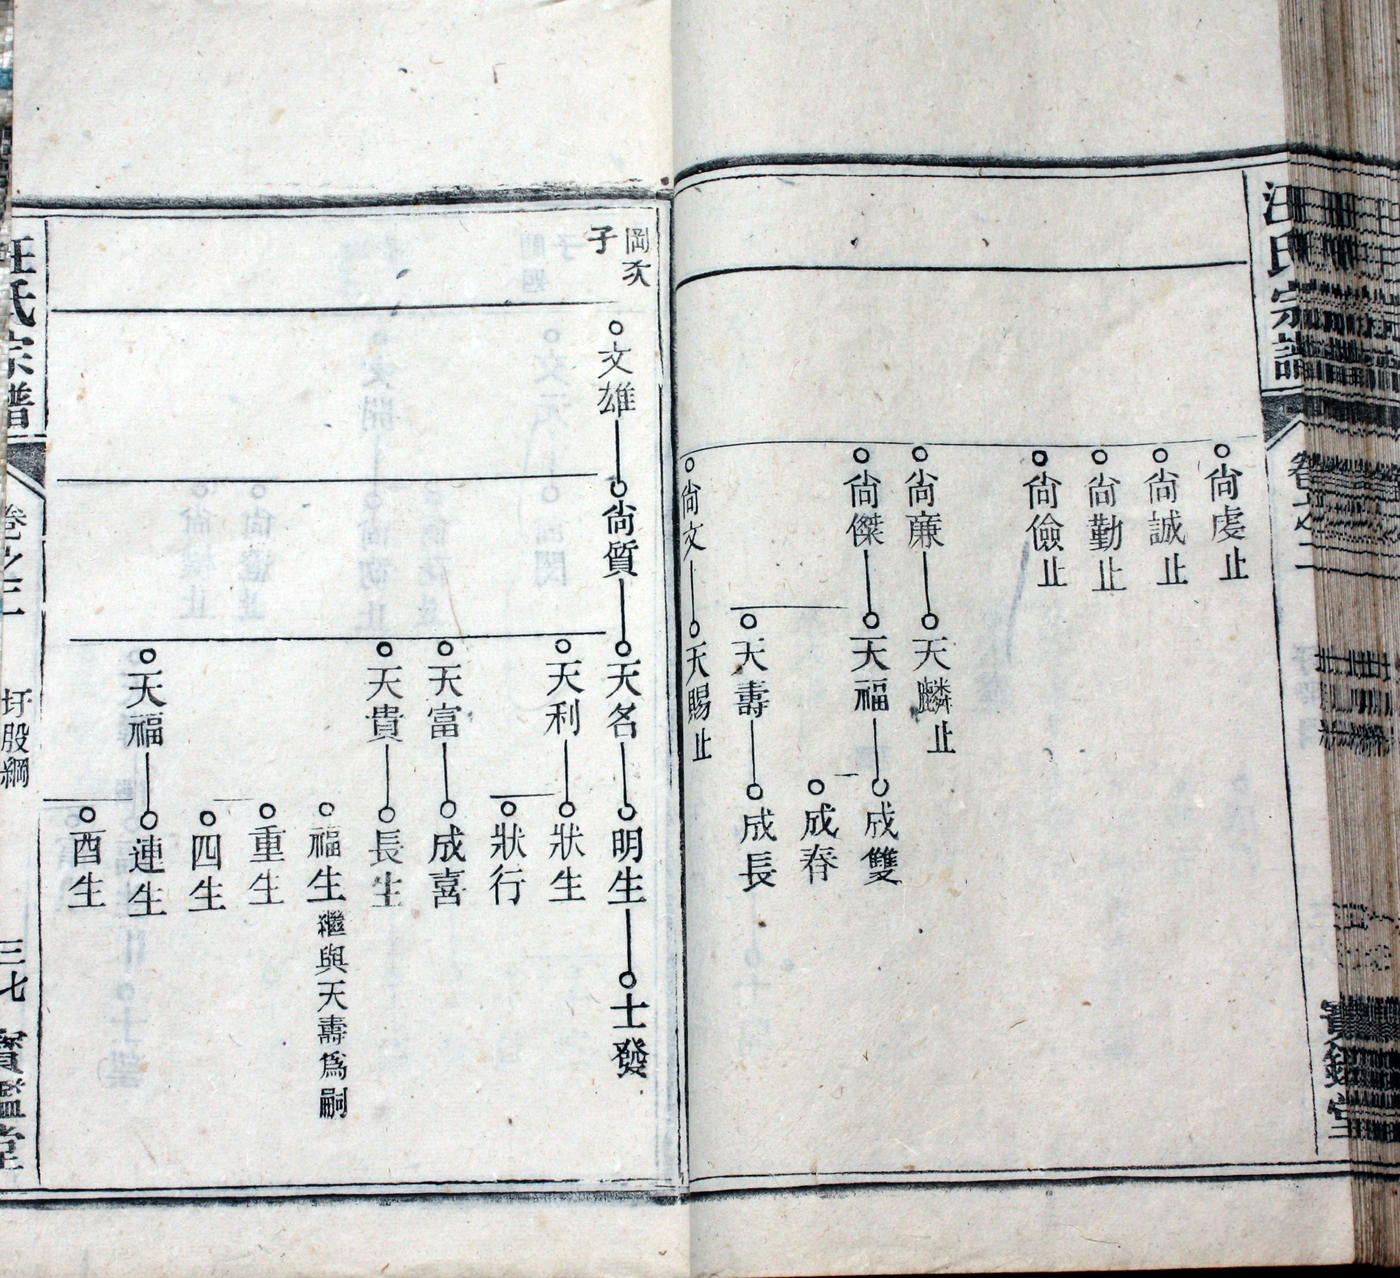 汪氏宗譜
卷之二
寶鑑堂
尙虔止
尙誠止
尙勤止
尙儉止
尙廉
天麟止
尙傑
天福
成雙
成春
天壽
成長
尙文
天賜止
岡次子
文雄
尙質
天名
明生
士發
天利
狀生
狀行
天富
成喜
天貴
長生
福生繼與天壽爲嗣
重生
四生
天福
連生
酉生
汪氏宗譜
卷之二
圩股綱
三七
寶鑑堂